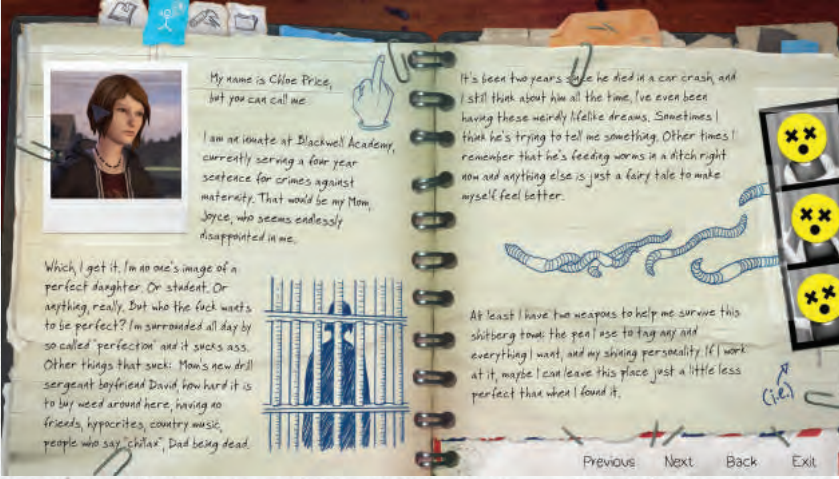 My name is Chloe Price,
but you can call me
I am an inmate at Blackwell Academy,
currently serving a four year
sentence for crimes against
maternity. That would be my Mom,
Joyce, who seems endlessly
disappointed in me.
Which, I get it. I'm no one's image of a
perfect daughter. Or student. Or
anything, really. But who the fuck wants
to be perfect? I'm surrounded all day by
so called "perfection" and it sucks ass.
Other things that suck: Mom's new drill
sergeant boyfriend David, how hard it is
to buy weed around here, having no
friends, hypocrites, country music,
people who say "chillax", Dad being dead.
It's been two years since he died in a car crash, and
I still think about him all the time, I've even been
having these weirdly lifelike dreams. Sometimes I
think he's trying to tell me something. Other times I
remember that he's feeding worms in a ditch right
now and anything else is just a fairy tale to make
myself feel better.
At least I have two weapons to help me survive this
shitberg town: the pen I use to tag any and
everything I want, and my shining personality. If I work
at it, maybe I can leave this place just a little less
perfect than when I found it.
(i.e.)
Previous Next Back Exit